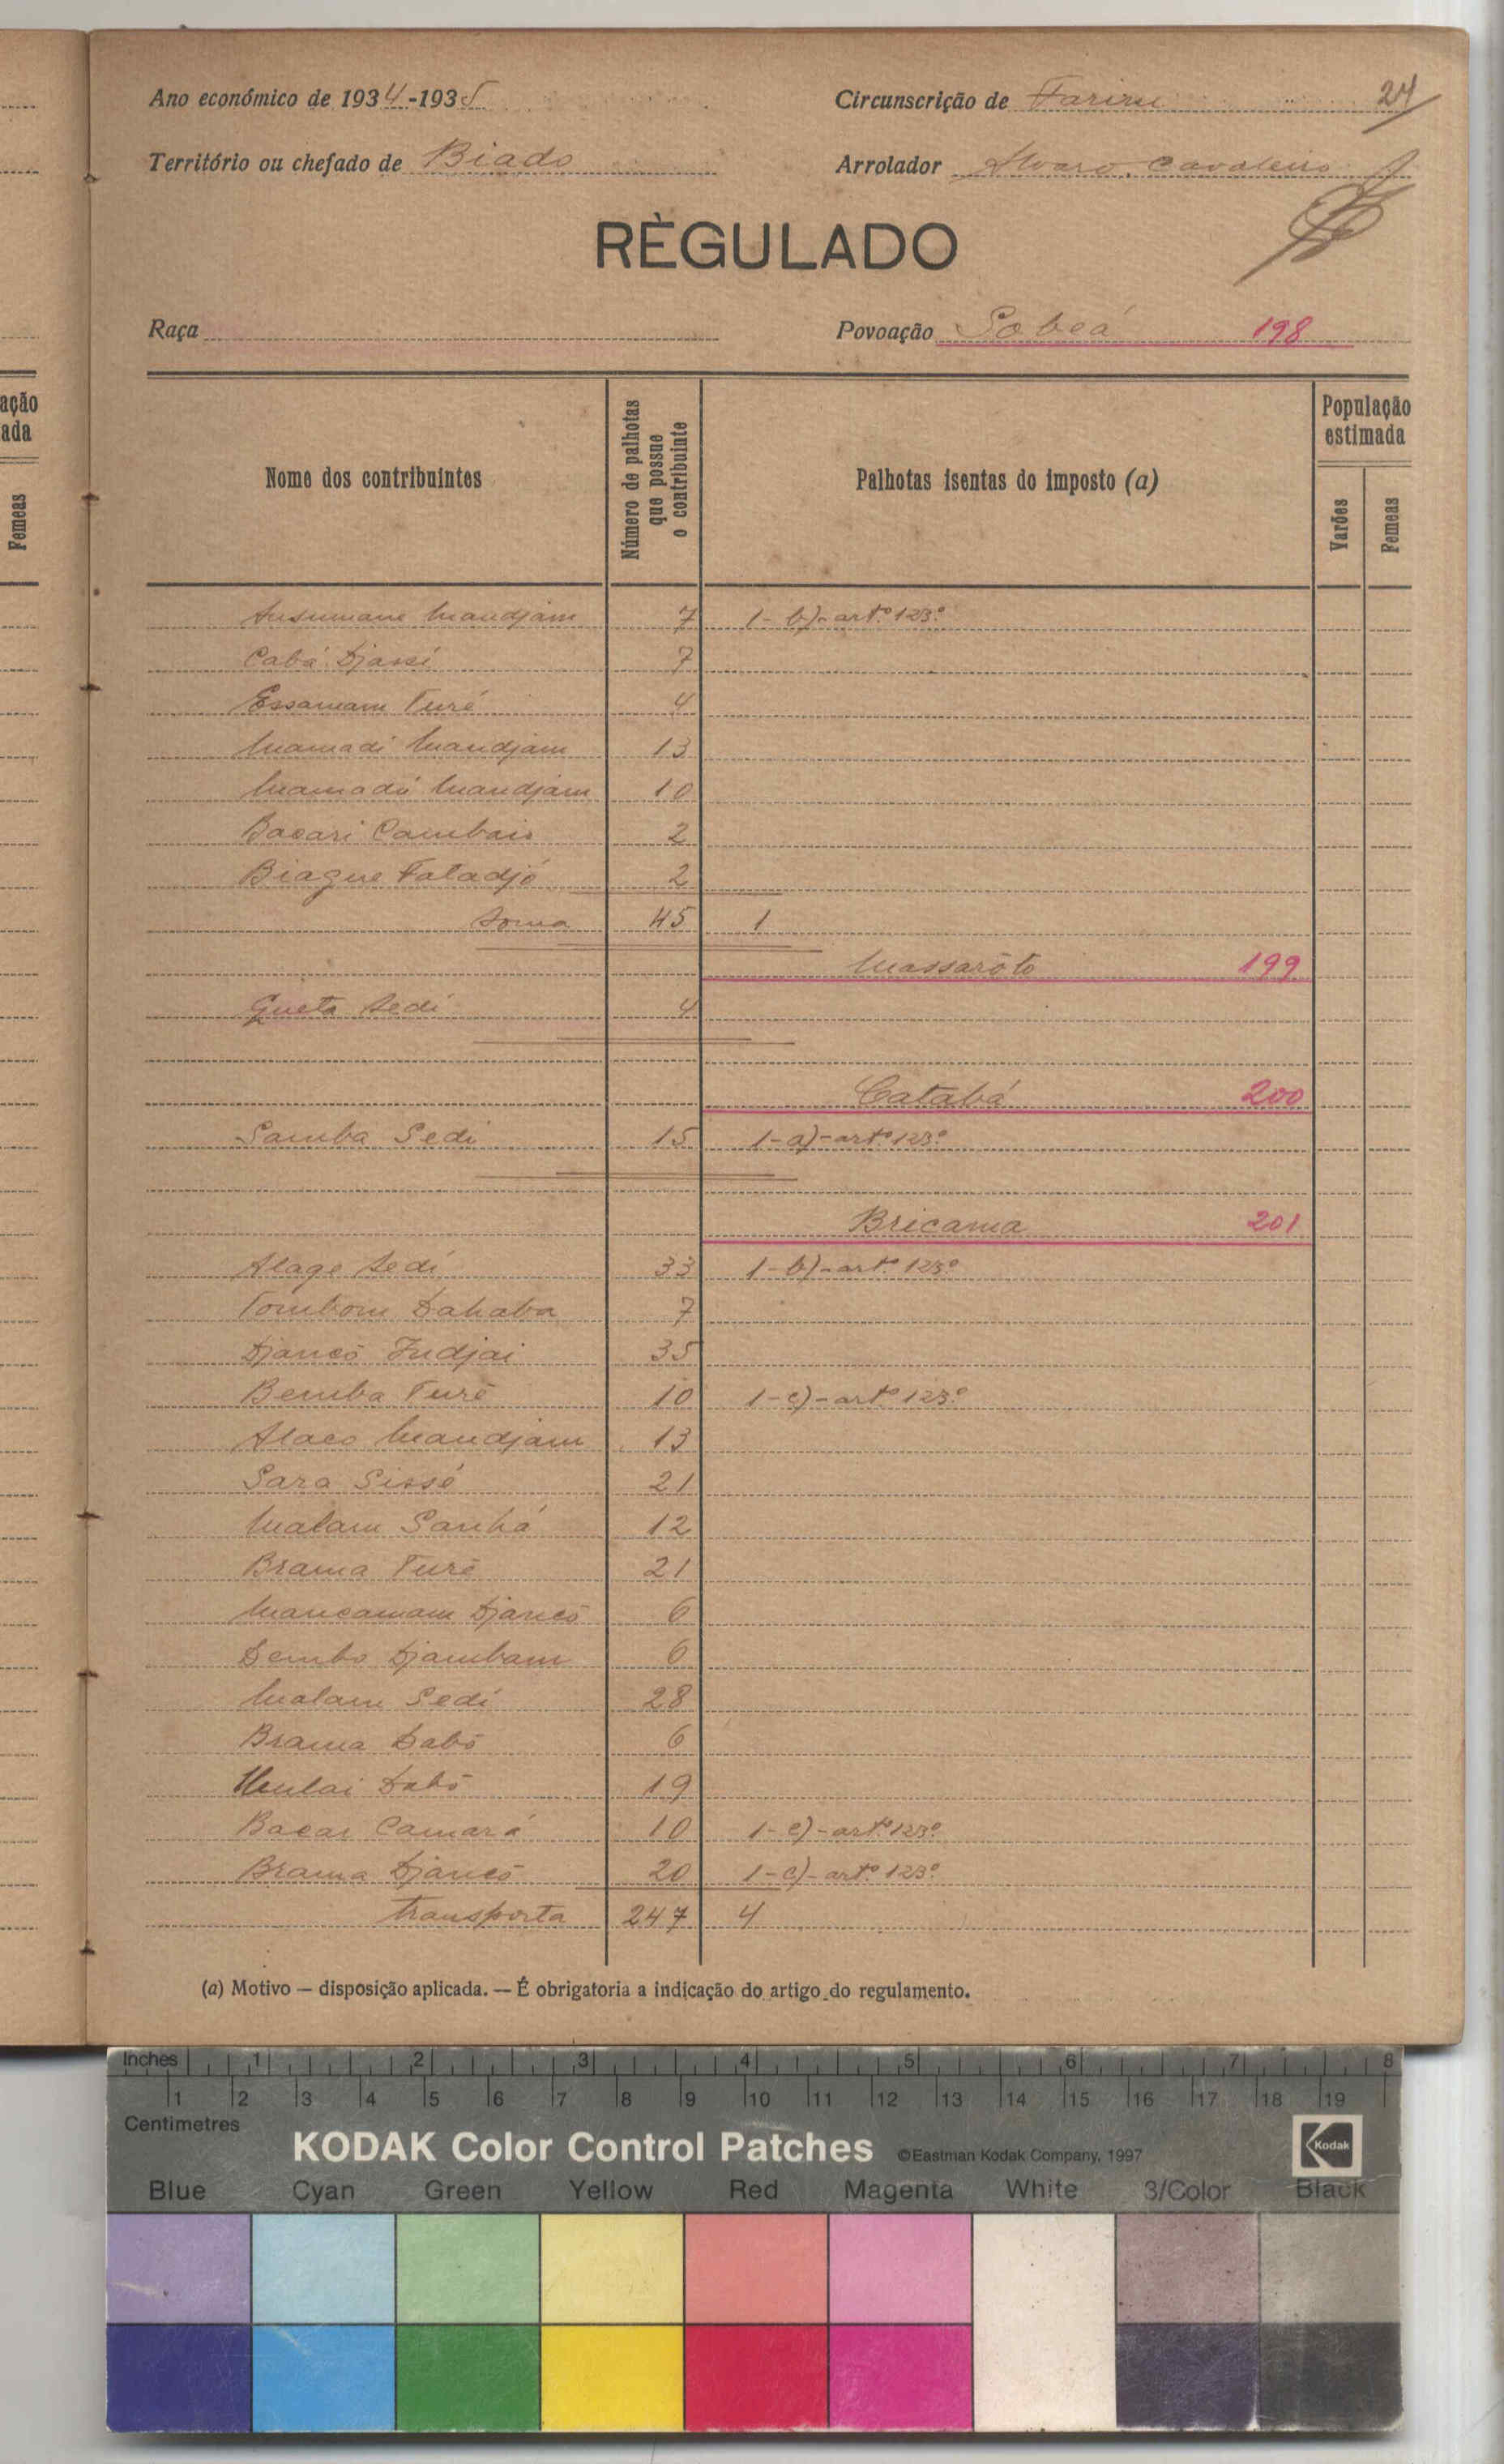 ação
ada
Femeas
Ano económico de 1934-1935
Circunscrição de Farim 24
Território ou chefado de Biado
Arrolador Alvaro Cavaleiro
RÈGULADO
Raça
Povoação Sobeá 198
Nome dos contribuintes
Número de palhotas que possue o contribuinte
Palhotas isentas do imposto (a)
População estimada
Varões
Femeas
Ansumane Mandjam 7 1-b)-artº 123º
Cabá Djassi 7
Essamam Turé 4
Mamadi Mandjam 13
Mamadú Mandjam 10
Bacari Cambaio 2
Biague Fatadjó 2
Soma 45 1
Massarôto 199
Gueta Sedi 4
Catabá 200
Samba Sedi 15 1-a)-artº 123º
Bricama 201
Alage Sedi 33 1-b)-artº 123º
Tombom Dahaba 7
Djancó Indjai 35
Bemba Turé 10 1-c)-artº 123º
Alaco Mandjam 13
Sara Sissé 21
Malam Sanhá 12
Brama Turé 21
Mancamam Djancó 6
Dembo Djambam 6
Malam Sedi 28
Brama Dabó 6
Mulai Dabó 19
Bacar Camará 10 1-c)-artº 123º
Brama Djancó 20 1-c)-artº 123º
Transporta 247 4
(a) Motivo — disposição aplicada. — É obrigatoria a indicação do artigo do regulamento.
Inches 1 2 3 4 5 6 7 8
1 2 3 4 5 6 7 8 9 10 11 12 13 14 15 16 17 18 19
Centimetres
KODAK Color Control Patches ©Eastman Kodak Company, 1997 Kodak
Blue Cyan Green Yellow Red Magenta White 3/Color Black